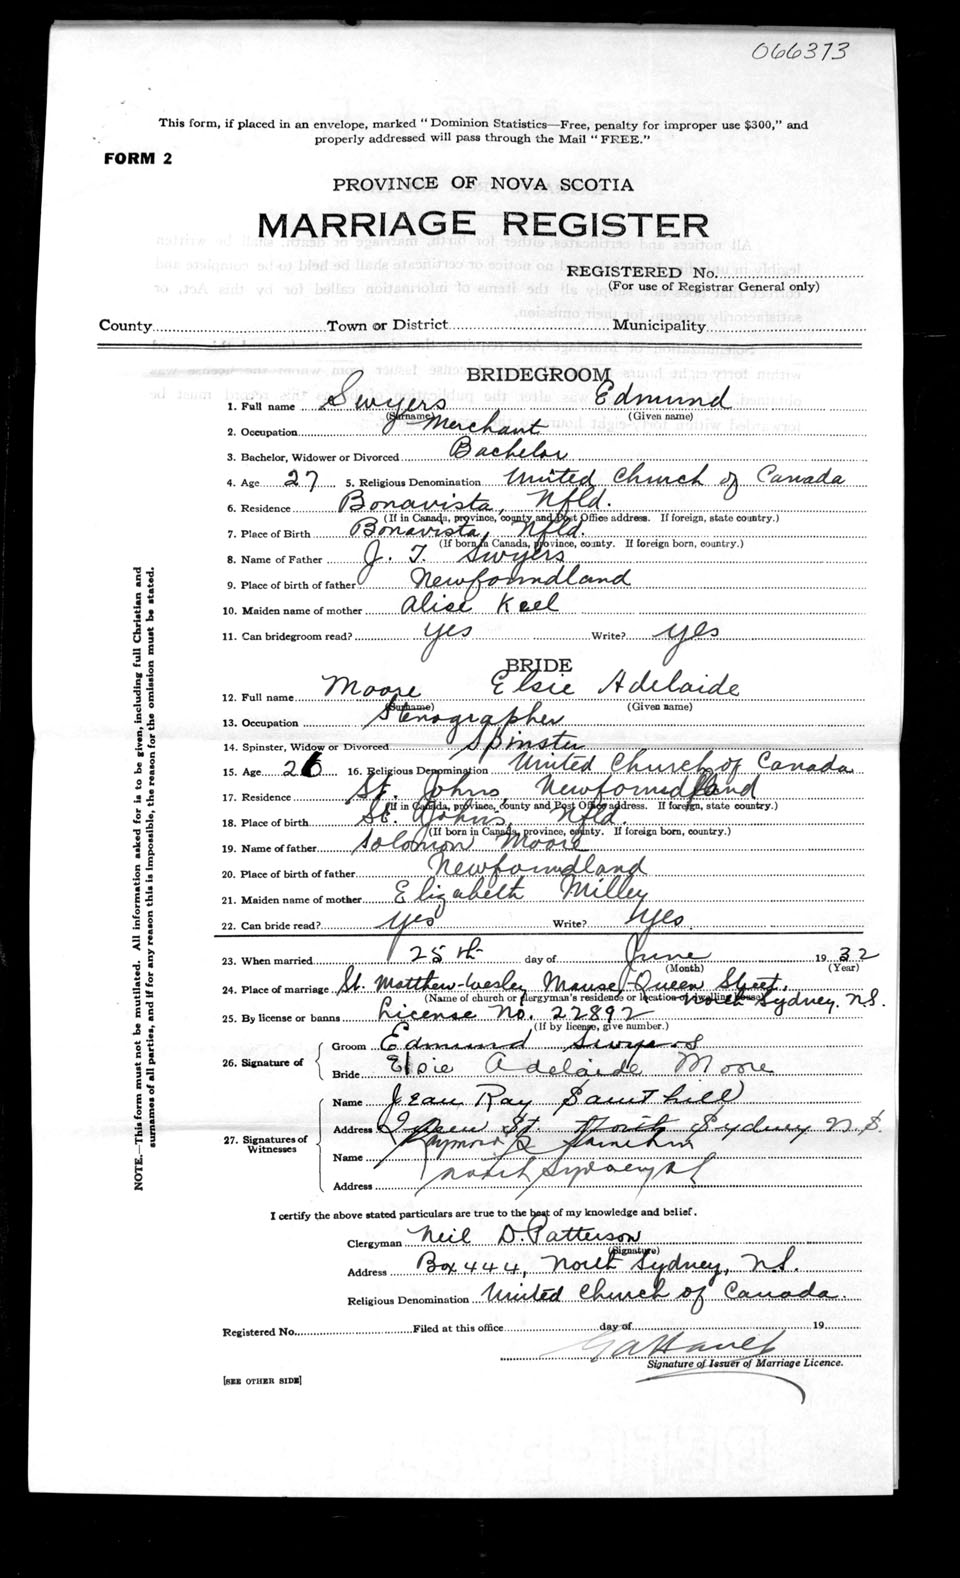 066373
This form, if placed in an envelope, marked "Dominion Statistics—Free, penalty for improper use $300," and
properly addressed will pass through the Mail "FREE."
FORM 2
PROVINCE OF NOVA SCOTIA
MARRIAGE REGISTER
REGISTERED No.
(For use of Registrar General only)
County Town or District Municipality
BRIDEGROOM
1. Full name Swyers Edmund
(Surname) (Given name)
2. Occupation Merchant
3. Bachelor, Widower or Divorced Bachelor
4. Age 27 5. Religious Denomination United Church of Canada
6. Residence Bonavista, Nfld.
(If in Canada, province, county and Post Office address. If foreign, state country.)
7. Place of Birth Bonavista, Nfld.
(If born in Canada, province, county. If foreign born, country.)
8. Name of Father J. T. Swyers
9. Place of birth of father Newfoundland
10. Maiden name of mother Alise Keel
11. Can bridegroom read? yes Write? yes
BRIDE
12. Full name Moore Elsie Adelaide
(Surname) (Given name)
13. Occupation Stenographer
14. Spinster, Widow or Divorced Spinster
15. Age 26 16. Religious Denomination United Church of Canada
17. Residence St. Johns, Newfoundland
(If in Canada, province, county and Post Office address. If foreign, state country.)
18. Place of birth St. Johns, Nfld.
(If born in Canada, province, county. If foreign born, country.)
19. Name of father Solomon Moore
20. Place of birth of father Newfoundland
21. Maiden name of mother Elizabeth Milley
22. Can bride read? yes Write? yes
23. When married 25th day of June 1932
(Month) (Year)
24. Place of marriage St. Matthew-Wesley Manse, Queen Street,
(Name of church or clergyman's residence or location of dwelling house) North Sydney, N.S.
25. By license or banns License No. 22892
(If by license, give number.)
26. Signature of Groom Edmund Swyers
Bride Elsie Adelaide Moore
27. Signatures of Witnesses
Name Jean Ray Sainthill
Address Queen St. North Sydney N.S.
Name Raymond Sainthill
Address North Sydney N S
I certify the above stated particulars are true to the best of my knowledge and belief.
Clergyman Neil D. Patterson
(Signature)
Address Box 444, North Sydney, N.S.
Religious Denomination United Church of Canada.
Registered No. Filed at this office day of 19
Signature of Issuer of Marriage Licence.
[SEE OTHER SIDE]
NOTE.—This form must not be mutilated. All information asked for is to be given, including full Christian and
surnames of all parties, and if for any reason this is impossible, the reason for the omission must be stated.